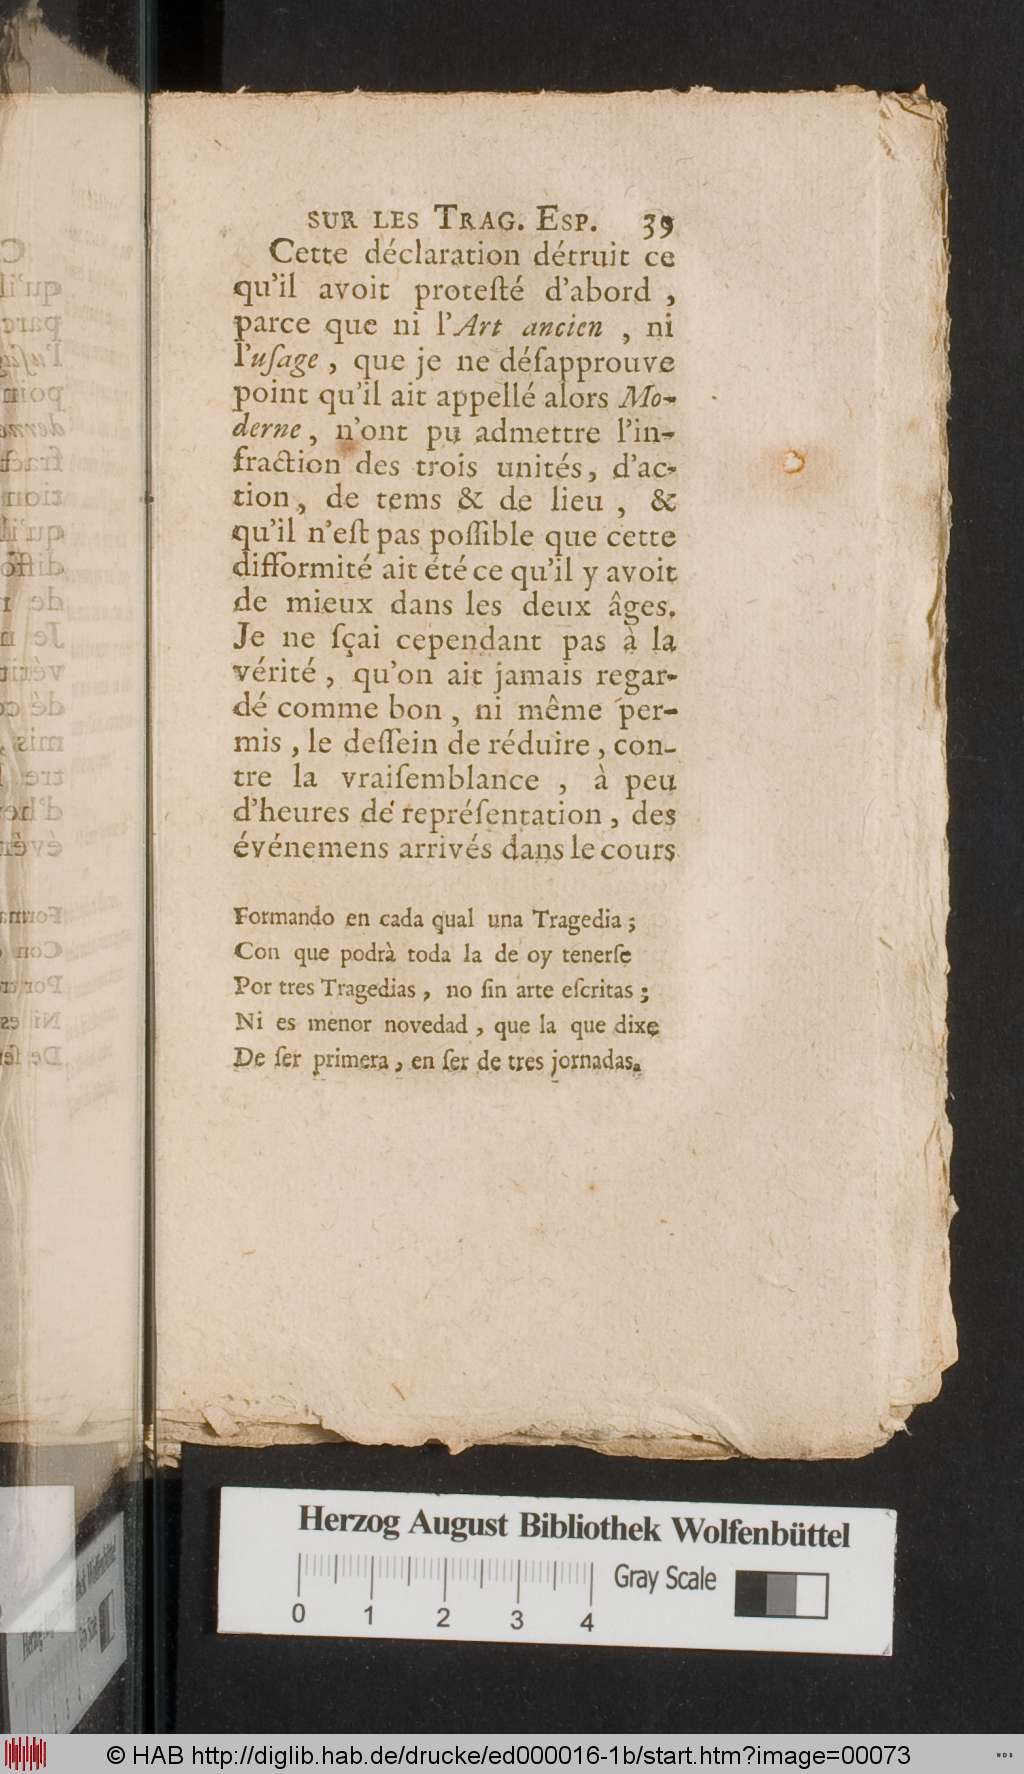 SUR LES TRAG. ESP. 39
Cette déclaration détruit ce
qu'il avoit proteſté d'abord ,
parce que ni l'Art ancien , ni
l'uſage , que je ne déſapprouve
point qu'il ait appellé alors Mo-
derne , n'ont pu admettre l'in-
fraction des trois unités, d'ac-
tion, de tems & de lieu , &
qu'il n'eſt pas poſſible que cette
difformité ait été ce qu'il y avoit
de mieux dans les deux âges.
Je ne ſçai cependant pas à la
vérité , qu'on ait jamais regar-
dé comme bon , ni même per-
mis , le deſſein de réduire , con-
tre la vraiſemblance , à peu
d'heures de repréſentation , des
événemens arrivés dans le cours
Formando en cada qual una Tragedia ;
Con que podrà toda la de oy tenerſe
Por tres Tragedias , no ſin arte eſcritas ;
Ni es menor novedad , que la que dixe
De ſer primera , en ſer de tres jornadas.
Herzog August Bibliothek Wolfenbüttel
Gray Scale
0 1 2 3 4
© HAB http://diglib.hab.de/drucke/ed000016-1b/start.htm?image=00073